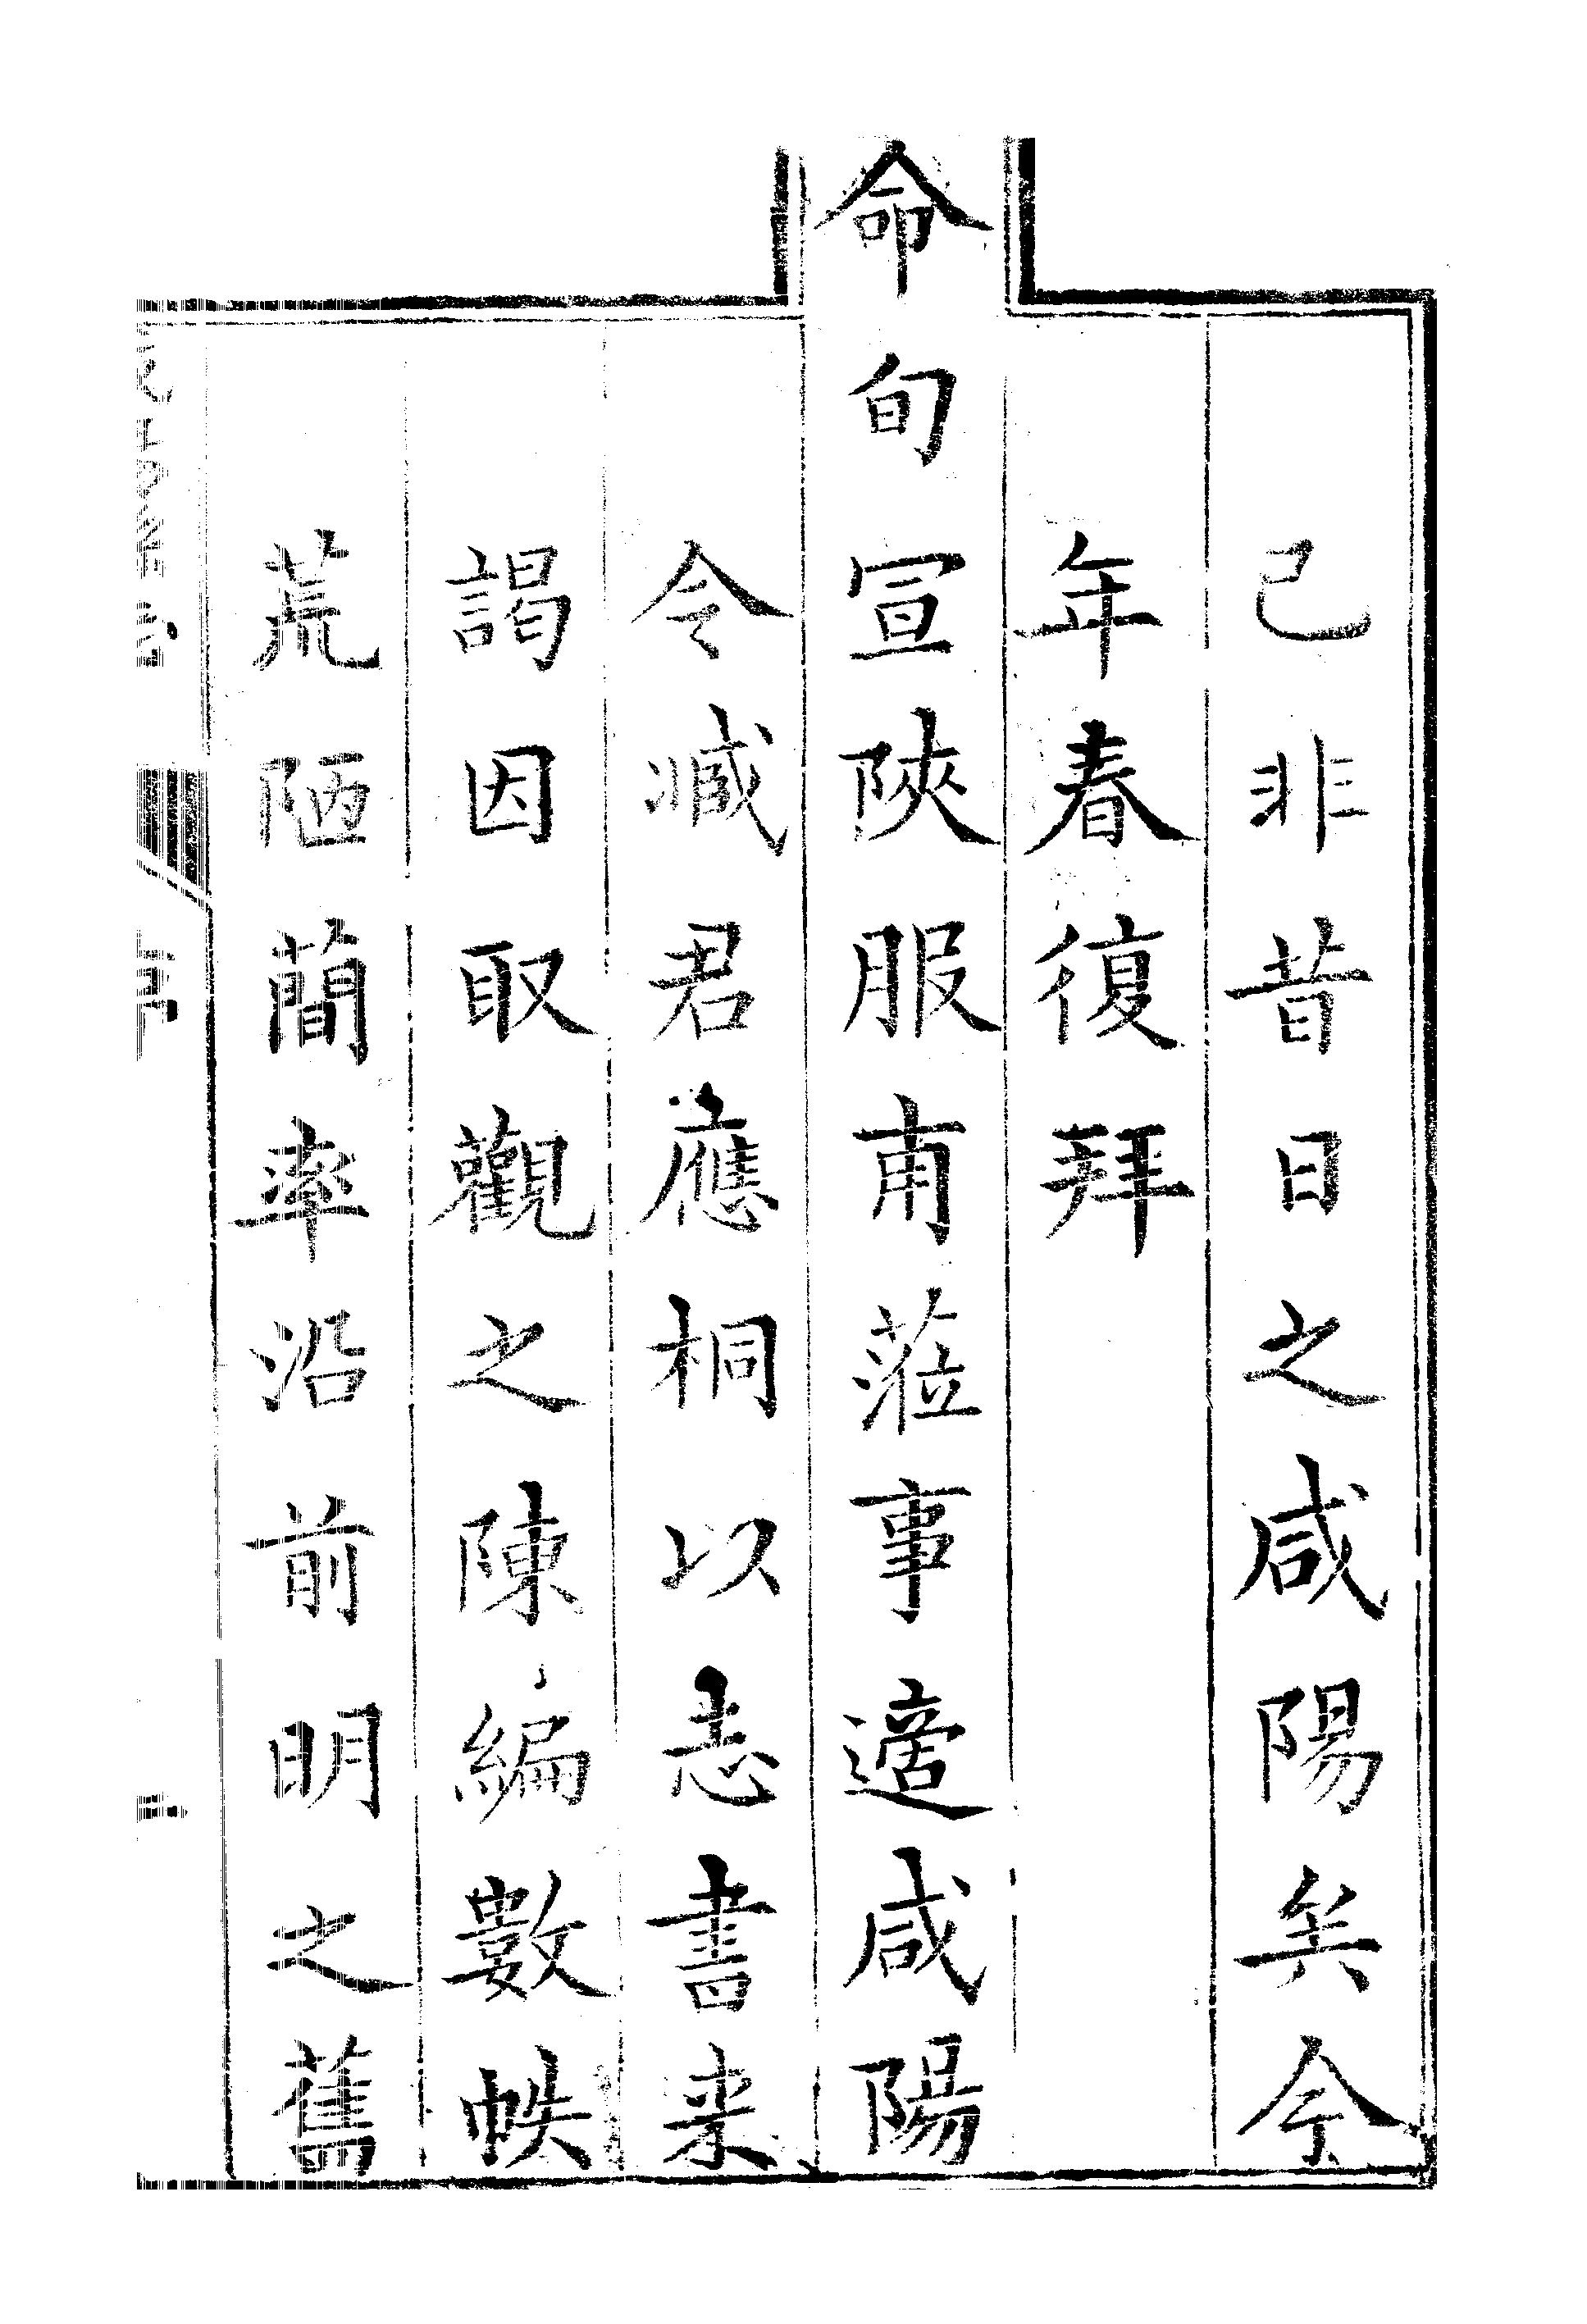 已非昔日之咸陽矣今
年春復拜
命旬宣陜服甫蒞事適咸陽
令臧君應桐以志書来
謁因取觀之陳編數帙
荒陋簡率沿前明之舊